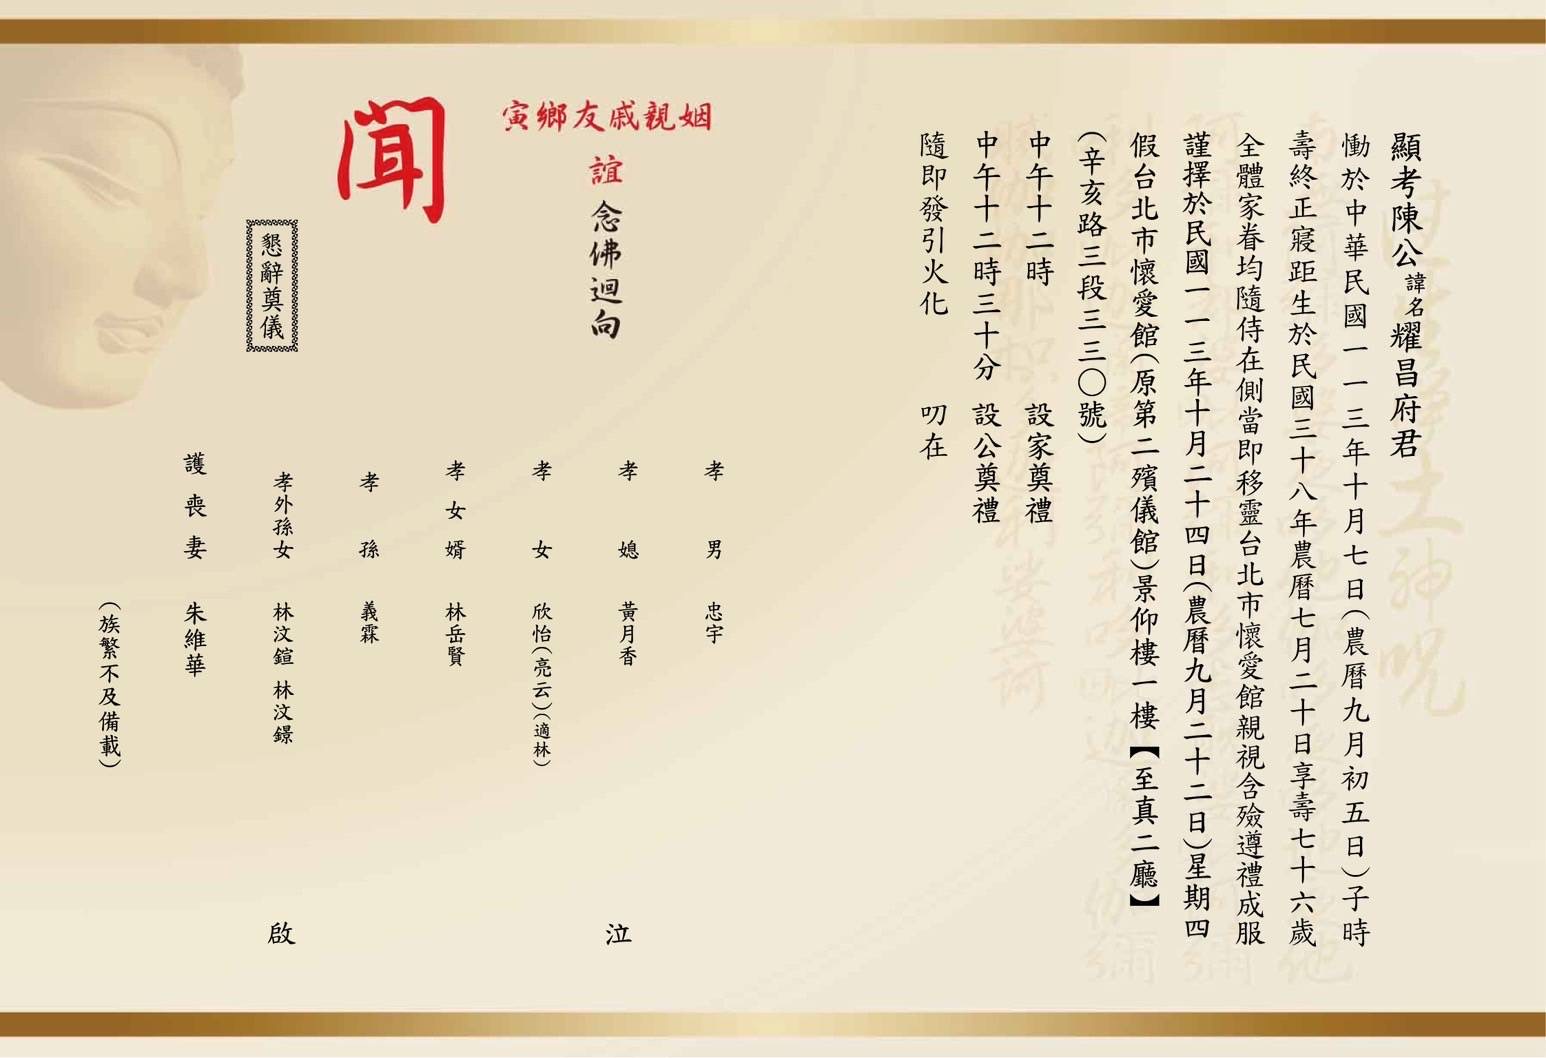 顯考陳公諱名耀昌府君
慟於中華民國一一三年十月七日(農曆九月初五日)子時
壽終正寢距生於民國三十八年農曆七月二十日享壽七十六歲
全體家眷均隨侍在側當即移靈台北市懷愛館親視含殮遵禮成服
謹擇於民國一一三年十月二十四日(農曆九月二十二日)星期四
假台北市懷愛館(原第二殯儀館)景仰樓一樓【至真二廳】
(辛亥路三段三三〇號)
中午十二時 設家奠禮
中午十二時三十分 設公奠禮
隨即發引火化 叨在
姻親戚友鄉寅
誼念佛迴向
聞
懇辭奠儀
孝男 忠宇
孝媳 黃月香
孝女 欣怡(亮云)(適林)
孝女婿 林岳賢
孝孫 義霖
孝外孫女 林汶鍹 林汶鐛
護喪妻 朱維華
(族繁不及備載)
泣
啟
往生淨土神咒